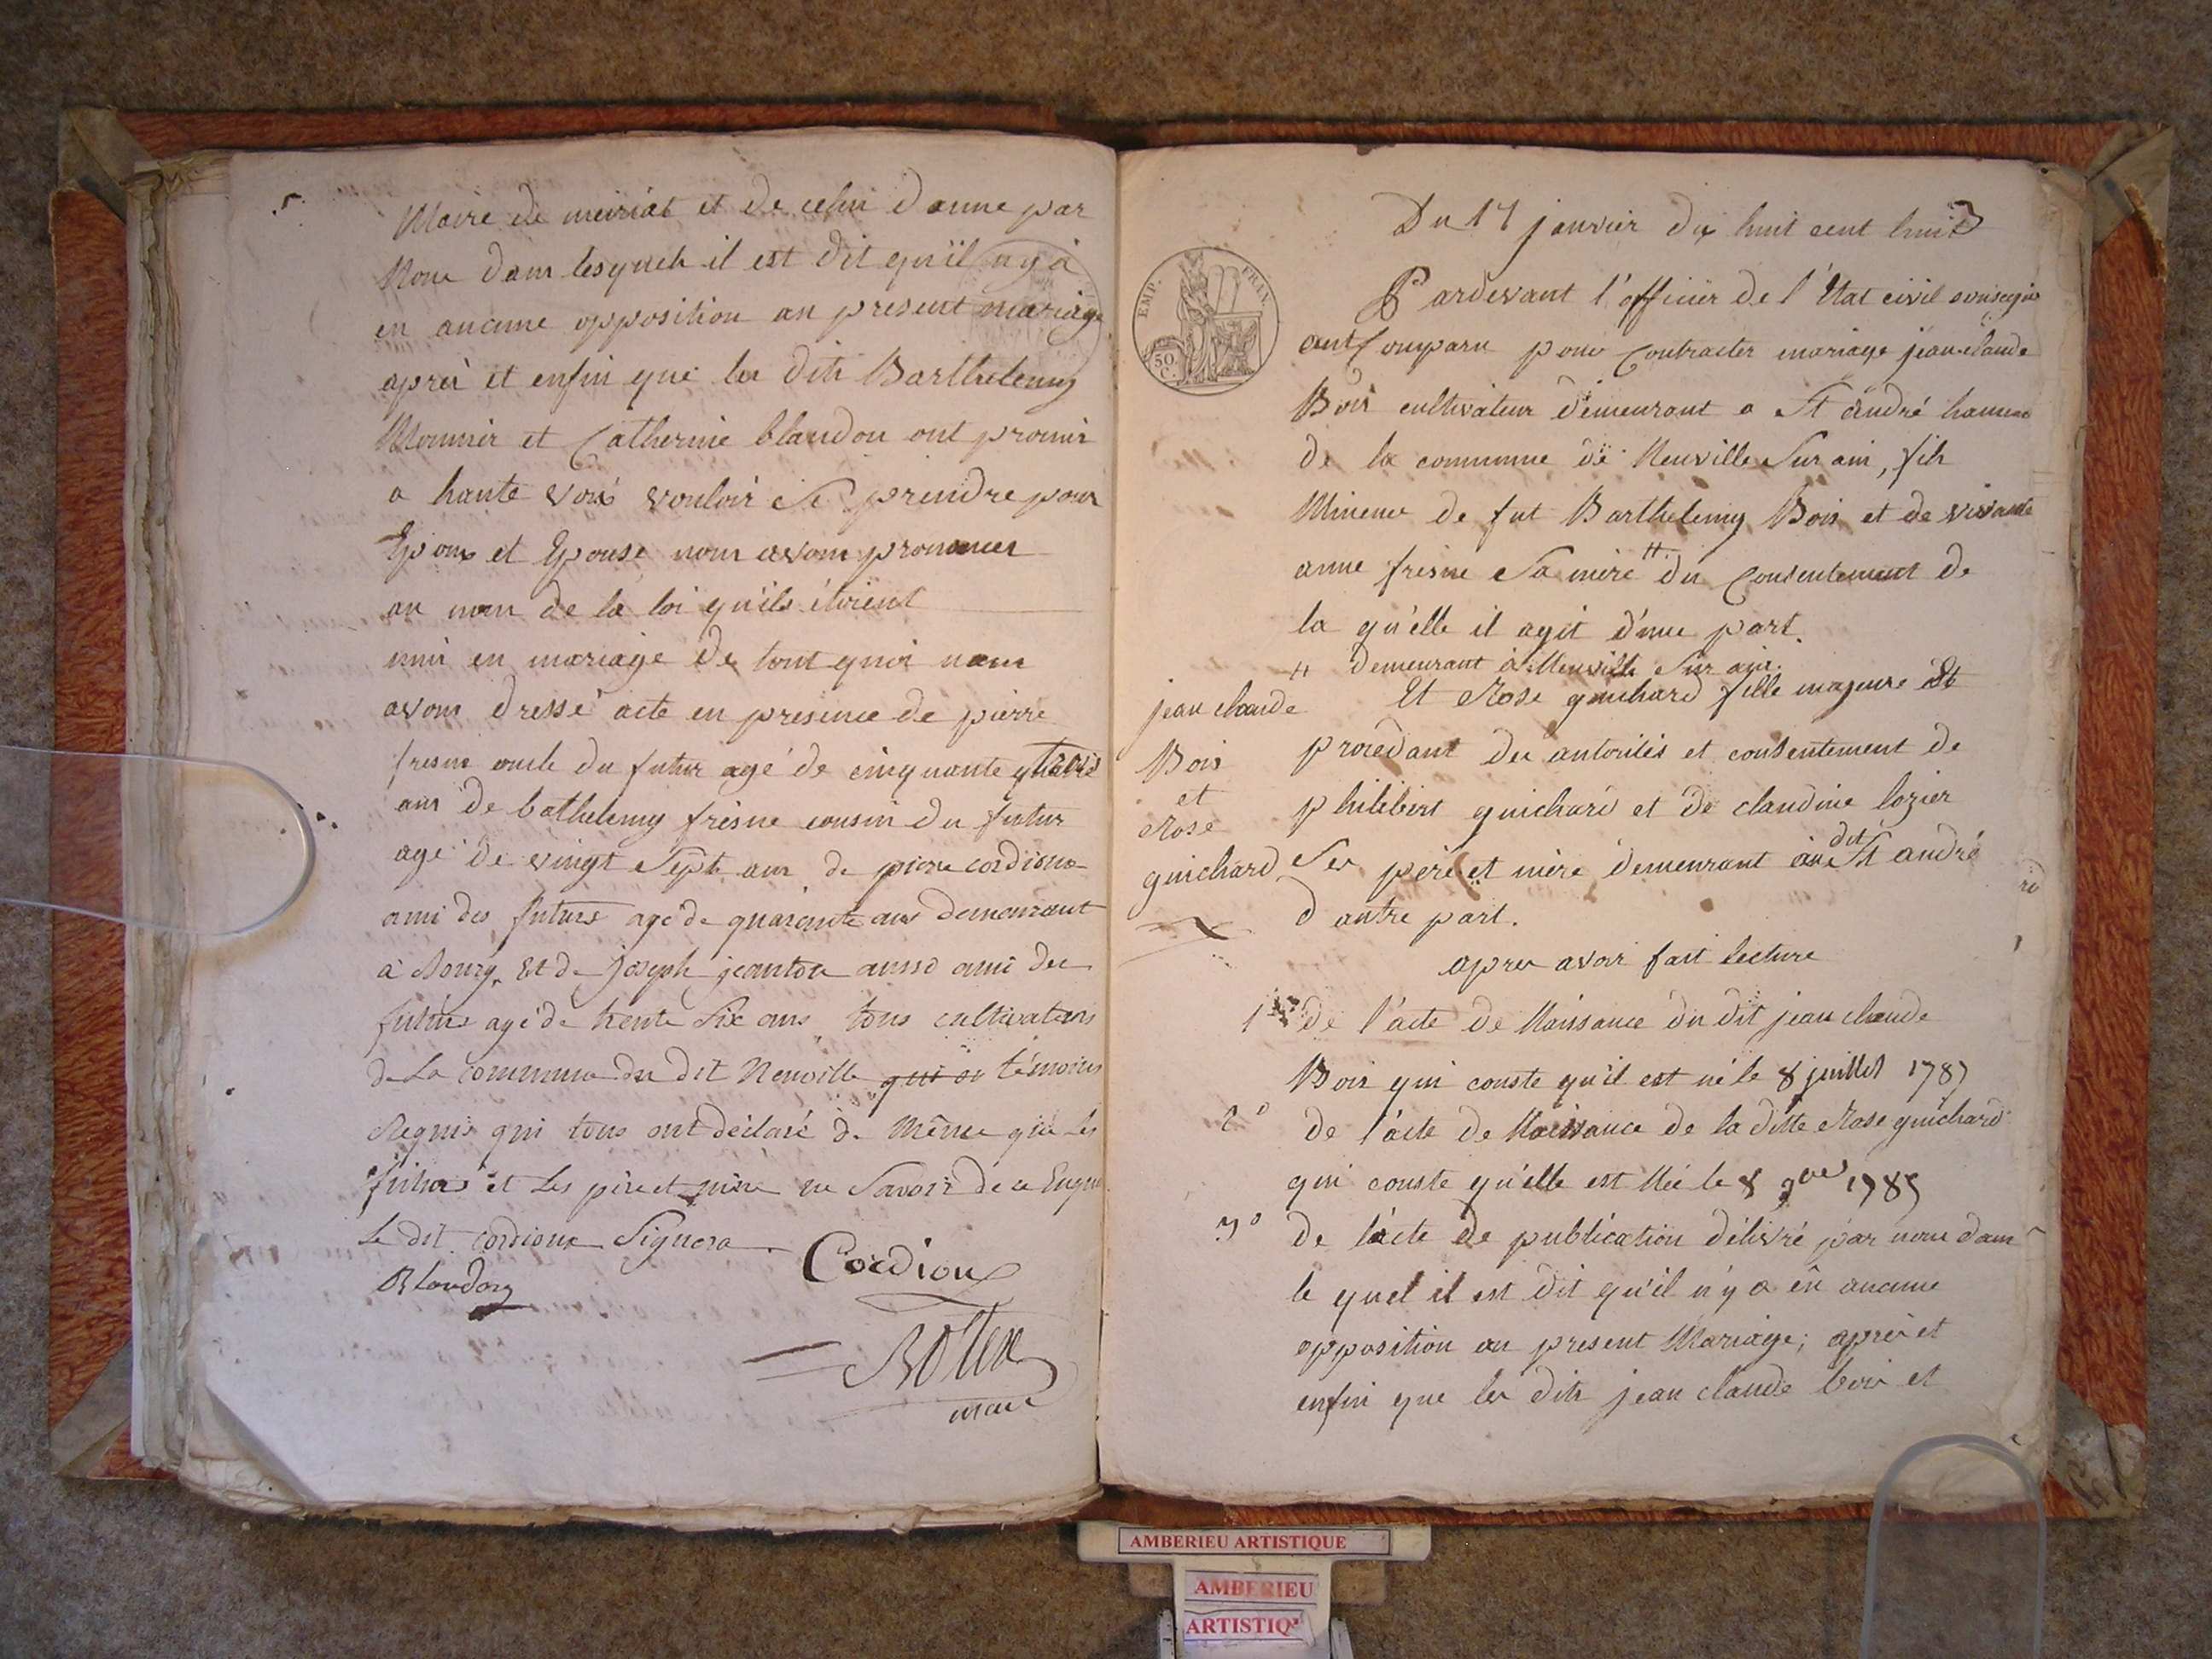 5.
Maire de meiriat et de celui donné par
Nous dans lesquels il est dit qu'il n'y a
eu aucune opposition au present mariage
après et enfin que les dits Barthelemy
Monnier et Catherine blandon ont promis
a haute voix vouloir se prendre pour
Epoux et Epouse nous avons prononcer
au nom de la loi qu'ils étoient
unis en mariage De tout quoi nous
avons dressé acte en presence de pierre
fresne oncle du futur agé de cinquante
ans de bathelemy fresne cousin du futur
agé de vingt sept ans de pierre cordioux
ami des futurs agé de quarente ans demeurant
a Bourg, Et de joseph jeanton aussi ami des
futurs agé de trente six ans tous cultivateurs
de La commune du dit Neuville qui si témoins
Requis qui tous ont déclaré de Même que les
futurs et les pere et mere ne Savoir de ce Enquis
Le dit cordioux Signera
Cordioux
Blandon
maire
Du 17 janvier dix huit cent huit
EMP. FRAN.
50 C.
Pardevant l'officier de l'Etat civil soussigné
ont Comparu pour Contracter mariage jean claude
Bois cultivateur demeurant a St andré hameau
de la commune de Neuville Sur ain, fils
Mineur de fut Barthelemy Bois et de vivante
anne fresne Sa mere # du Consentement de
la qu'elle il agit d'une part.
# demeurant à Neuville Sur ain.
jean claude
Bois
et
Rose
guichard
Et Rose guichard fille majeure Et
procédant des autorités et consentement de
philibert guichard et de claudine lozier
Ses pere et mère demeurant au dit St andré
d'autre part.
apres avoir fait lecture
1° de l'acte de Naissance du dit jean claude
Bois qui conste qu'il est né le 8 juillet 1787
2° de l'acte de Naissance de la ditte Rose guichard
qui conste qu'elle est Née le 8 9bre 1785
3° de l'acte de publication délivré par nous dans
le quel il est dit qu'il n'y a eû aucune
opposition au present Mariage; après et
enfin que les dits jean claude bois et
AMBERIEU ARTISTIQUE
AMBERIEU
ARTISTIQ